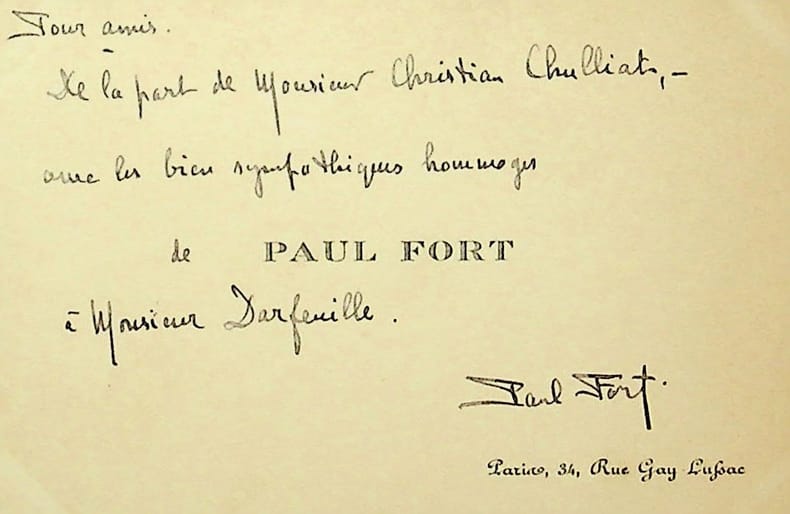 Pour amis.
De la part de Monsieur Christian Chulliat, –
avec les bien sympathiques hommages
de PAUL FORT
à Monsieur Darfeuille.
Paul Fort.
Paris, 34, Rue Gay Lussac